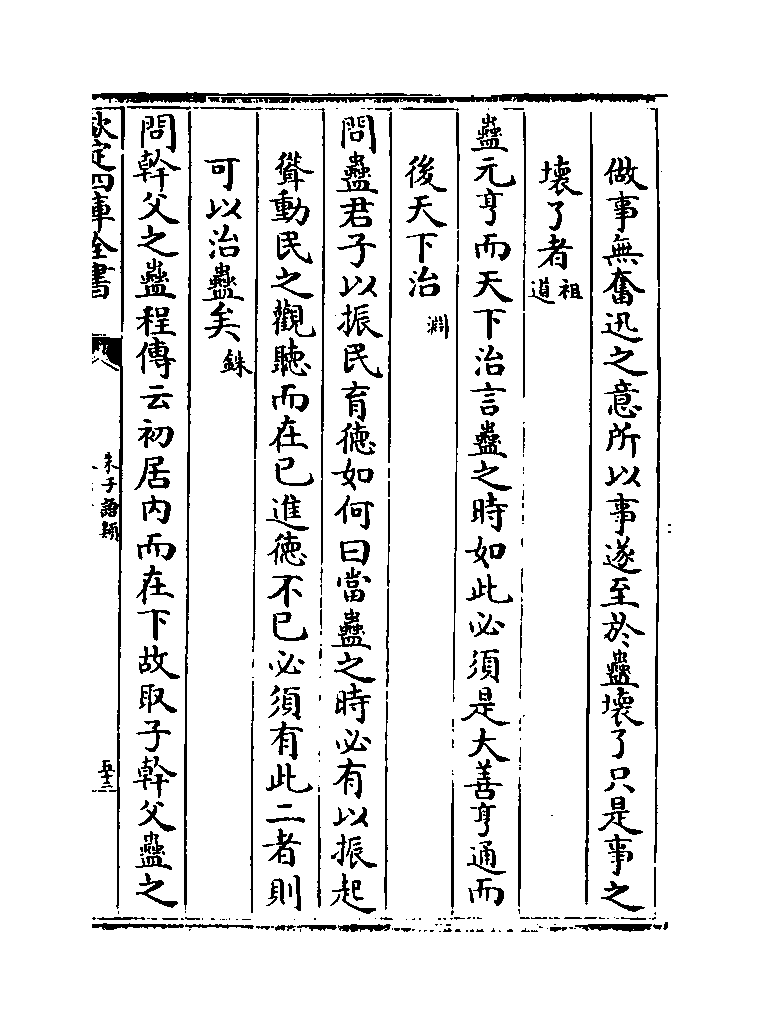 做事無奮迅之意所以事遂至於蠱壞了只是事之
壞了者祖道
蠱元亨而天下治言蠱之時如此必須是大善亨通而
後天下治淵
問蠱君子以振民育徳如何曰當蠱之時必有以振起
聳動民之觀聽而在已進徳不已必須有此二者則
可以治蠱矣銖
問幹父之蠱程傳云初居内而在下故取子幹父蠱之
欽定四庫全書
朱子語類
五十二